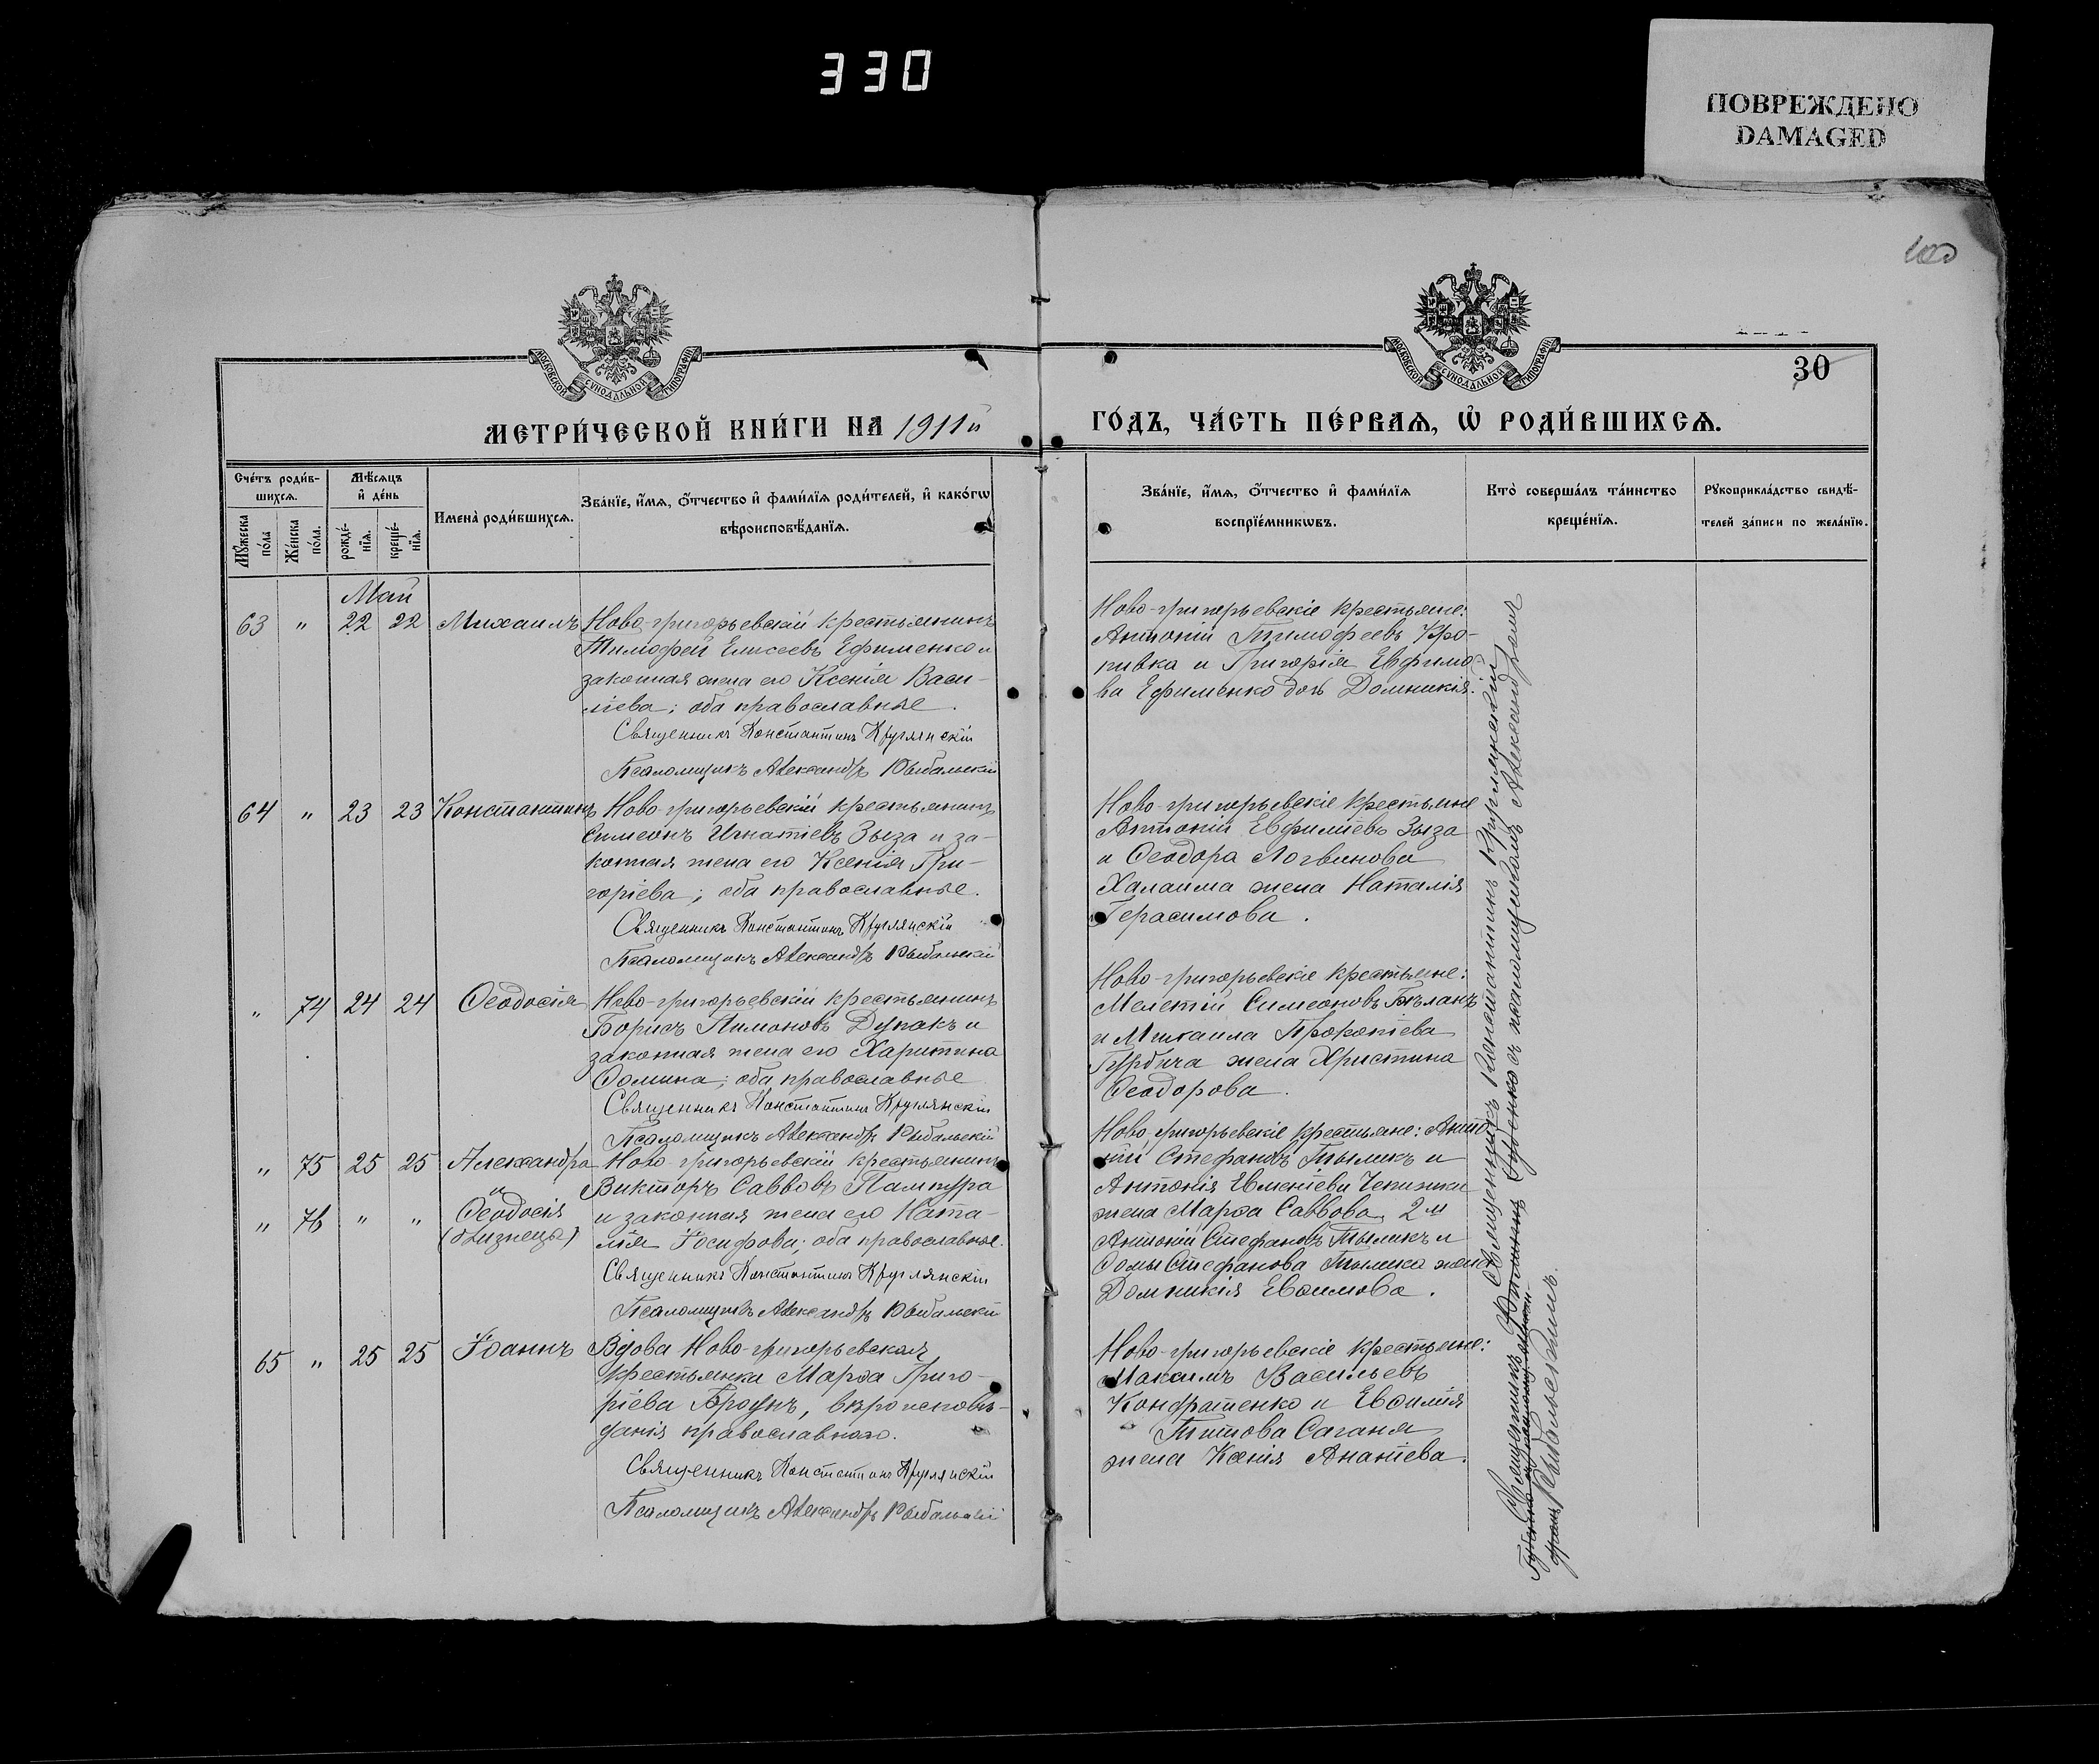 330
ПОВРЕЖДЕНО
DAMAGED
МОСКОВСКОЙ СѴНОДАЛЬНОЙ ТИПОГРАФІИ
МОСКОВСКОЙ СѴНОДАЛЬНОЙ ТИПОГРАФІИ
30
МЕТРИ́ЧЕСКОЙ КНИ́ГИ НА 1911й
ГО́ДЪ, ЧА́СТЬ ПЕ́РВАѦ, Ѡ҆ РОДИ́ВШИХСѦ.
Сче́тъ роди́в-
шихсѧ.
Мꙋ́жеска по́ла
Же́нска по́ла.
Мѣ́сѧцъ
и҆ де́нь
рожде́-
нїѧ.
креще́-
нїѧ.
Имена̀ роди́вшихсѧ.
Зва́нїе, и҆́мѧ, ѻ҆́тчество и҆ фами́лїѧ роди́телей, и҆ како́гѡ
вѣроисповѣ́данїѧ.
Зва́нїе, и҆́мѧ, ѻ҆́тчество и҆ фами́лїѧ
воспрїе́мникѡвъ.
Кто̀ соверша́лъ та́инство
креще́нїѧ.
Рꙋкоприкла́дство свидѣ́-
телей за́писи по жела́нїю.
Май
63 " 22 22 Михаилъ
Ново-григорьевскій крестьянинъ
Тимофей Елисеевъ Ефименко и
законная жена его Ксенія Васи-
ліева; оба православные.
Священникъ Константинъ Круглянскій
Псаломщикъ Александръ Рыбальскій
Ново-григорьевскіе крестьяне:
Антоній Тимофеевъ Кро-
пивка и Григорія Евфимо-
ва Ефименко дочь Домникія.
64 " 23 23 Константинъ
Ново-григорьевскій крестьянинъ
Симеонъ Игнатіевъ Зыза и за-
конная жена его Ксенія Гри-
горіева; оба православные.
Священникъ Константинъ Круглянскій
Псаломщикъ Александръ Рыбальскій
Ново-григорьевскіе крестьяне
Антоній Евфиміевъ Зыза
и Ѳеодора Логвинова
Халаима жена Наталія
Герасимова.
" 74 24 24 Ѳеодосія
Ново-григорьевскій крестьянинъ
Борисъ Пимоновъ Дупакъ и
законная жена его Харитина
Ѳомина; оба православные
Священникъ Константинъ Круглянскій
Псаломщикъ Александръ Рыбальскій
Ново-григорьевскіе крестьяне:
Мелетій Симеоновъ
и Михаила Прокопіева
жена Христина
Ѳеодорова.
" 75 25 25 Александра
и
" 76 " " Ѳеодосія
(близнецы)
Ново-григорьевскій крестьянинъ
Викторъ Саввовъ Пампура
и законная жена его Ната-
лія Іосифова; оба православные.
Священникъ Константинъ Круглянскій
Псаломщикъ Александръ Рыбальскій
Ново-григорьевскіе крестьяне: Анто-
ній Стефановъ Тымикъ и
Антонія Евменіева
жена Марѳа Саввова, 2й
Антоній Стефановъ Тымикъ и
Ѳомы Стефанова Тымика жена
Домникія Евѳимова.
65 " 25 25 Іоаннъ
Вдова Ново-григорьевская
крестьянка Марѳа Григо-
ріева Бровунъ, вѣроисповѣ-
данія православнаго.
Священникъ Константинъ Круглянскій
Псаломщикъ Александръ Рыбальскій
Ново-григорьевскіе крестьяне:
Максимъ Васильевъ
Кондратенко и Евѳимія
Титова Сагана
жена Ксенія Ананіева.
Священникъ Константинъ Круглянскій
съ псаломщикомъ Александромъ
Рыбальскимъ.